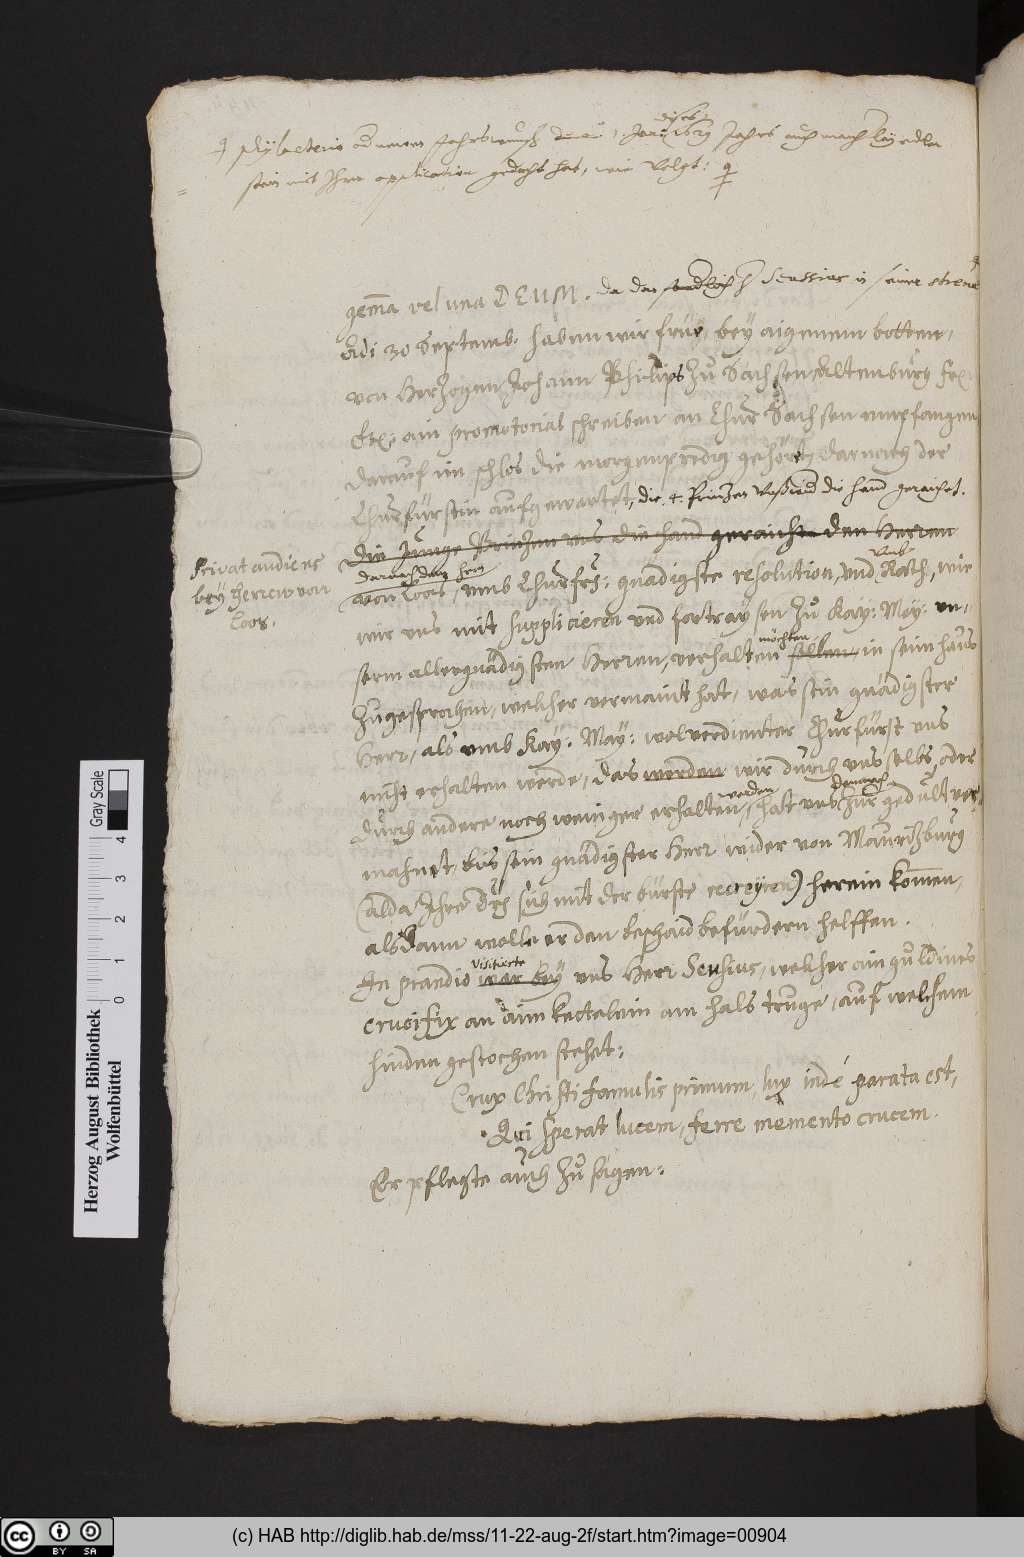 stein mit Ihrer application gedacht hat, wie volgt:
gemma vel una DEUM. da der Seussius in seiner
Adi 30 Septemb: haben wir frue, bey aigenem botten,
von Herzogen Johann Philips zu Sachsen Altenburg
ain promotorial schreiben an Chur Sachsen empfangen
darauf im schlos die morgenpredig gehört, darnach der
Churfürstin aufgewartet, die 4. Prinzen die hand geraicht.
die Junge Prinzen uns die hand geraicht den Herren
Privat audienz
bey Herren von
Loos.
von Loos, umb Churfrs: gnädigste resolution, und Rath, wie
wir uns mit suppliciren und fortraysen zu Kay: May: un-
serm allergnädigsten Herren, verhalten möchten sollen in seim haus
zugesprochen, welcher vermaint hat, was sein gnädigster
Herr, als umb Kay: May: wolverdienter Churfürst uns
nicht erhalten werde, das werden wir durch uns selbs, oder
durch andere noch weniger erhalten werden, hat uns demnach zur gedult ver-
mahnet, bis sein gnädigster Herr wider von Mauritzburg
(alda Ihre sich mit der bürste) herein kommen,
alsdann wolle er den beschaid befürdern helffen.
In prandio visitirte war bey uns Herr Seusius, welcher ain guldines
crucifix an aim kettelein am hals truge, auf welchem
hinden gestochen stehet:
Crux Christi famulis primum, lux inde parata est,
Qui sperat lucem, ferre memento crucem.
Er pflegte auch zu sagen:
Herzog August Bibliothek
Wolfenbüttel
0 1 2 3 4
Gray Scale
cc BY SA
(c) HAB http://diglib.hab.de/mss/11-22-aug-2f/start.htm?image=00904